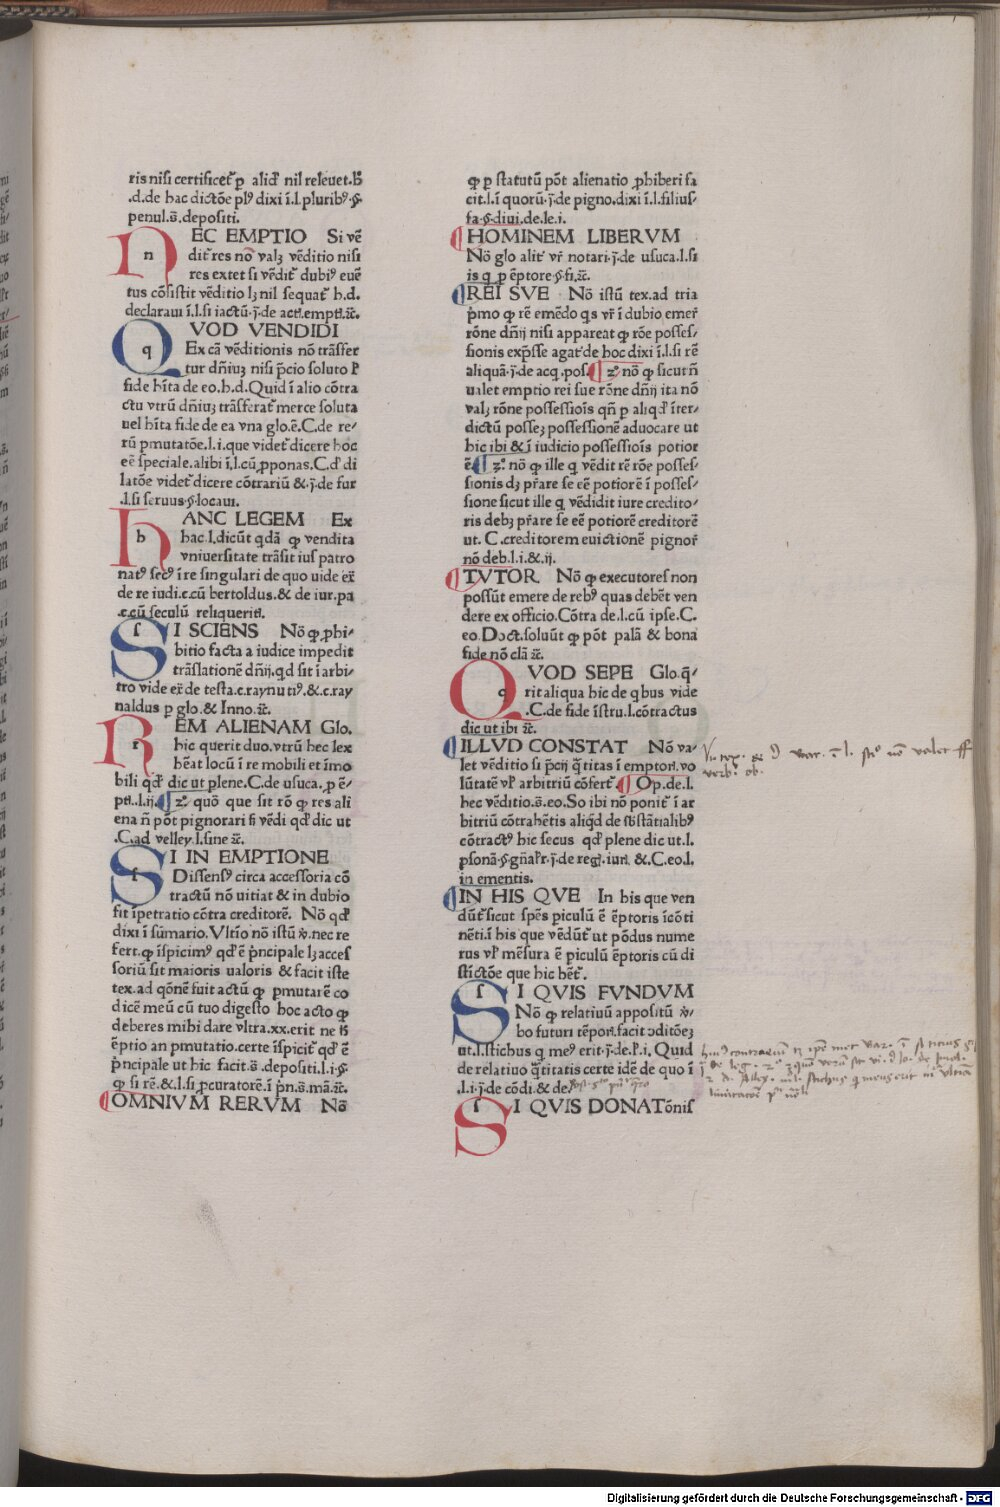 ris nisi certificet᷑ ꝑ aliđ nil releuet.b̄
.d.de hac dictōe plꝰ dixi ī.l.pluribꝰ.§.
penul.s̄.depositi.
NEC EMPTIO Si vē
dit᷑ res nō valꝫ vēditio nisi
res extet si vēdit᷑ dubiꝰ euē
tus cōsistit vēditio lꝫ nil sequat᷑ h.d.
declaraui ī.l.si iactū.j̄.de act᷑.empt᷑.ꝛc̄.
QVOD VENDIDI
Ex cā vēditionis nō trāsfer
tur dn̄iuꝫ nisi p̄cio soluto ł
fide hīta de eo.h.d.Quid ī alio cōtra
ctu vtrū dn̄iuꝫ trāsferat᷑ merce soluta
uel hīta fide de ea vna glo.ē.C.de re/
rū pmutatōe.l.i.que videt᷑ dicere hoc
eē speciale.alibi ī.l.cū ꝓponas.C.đ di
latōe videt᷑ dicere cōtrariū &.j̄.de fur
.l.si seruus.§.locaui.
HANC LEGEM Ex
hac.l.dicūt qdā ꝙ vendita
vniuersitate trāsit ius patro
natꝰ secꝰ ī re singulari de quo uide ex̄
de re iudi.c.cū bertoldus.& de iur.pa
.c.cū seculū reliquerit᷑.
SI SCIENS Nō ꝙ ꝓhi/
bitio facta a iudice impedit
trāslationē dn̄ij.qđ sit ī arbi/
tro vide ex̄ de testa.c.raynutiꝰ.&.c.ray
naldus p glo.& Inno.ꝛc̄.
REM ALIENAM Glo.
hic querit duo.vtrū hec lex
hēat locū ī re mobili et īmo
bili qđ dic ut plene.C.de usuca.ꝓ ē/
pt᷑.l.ij. ¶ 2º quō que sit rō ꝙ res ali
ena n̄ pōt pignorari s̄ vēdi qđ dic ut
.C.ad velley.l.sine ꝛc̄.
SI IN EMPTIONE
Dissensꝰ circa accessoria cō
tractū nō uitiat & in dubio
fit īpetratio cōtra creditorē. Nō qđ
dixi ī sūmario.Vltīo nō istū v̄.nec re
fert.ꝙ īspicimꝰ qđ ē p̄ncipale lꝫ acces
soriū sit maioris ualoris & facit iste
tex.ad qōnē fuit actū ꝙ pmutarē co
dicē meū cū tuo digesto hoc acto ꝙ
deberes mihi dare vltra.xx.erit ne h̄
ēptio an pmutatio.certe īspicit᷑ qđ ē
p̄ncipale ut hic facit.s̄.depositi.l.i.§
ꝙ si rē.&.l.si ꝓcuratorē.ī p̄n.s̄.mā.ꝛc̄.
¶ OMNIVM RERVM Nō
ꝙ p statutū pōt alienatio ꝓhiberi fa
cit.l.ī quorū.j̄.de pigno.dixi ī.l.filius/
fa.§.diui.de.le.i.
¶ HOMINEM LIBERVM
Nō glo alit᷑ vr̄ notari.j̄.de usuca.l.si
is q ꝓ ēptore.§.fi.ꝛc̄.
¶ REI SVE Nō istū tex.ad tria
p̄mo ꝙ rē emēdo qs vr̄ ī dubio emer̄
rōne dn̄ij nisi appareat ꝙ rōe posses/
sionis exp̄sse agat᷑ de hoc dixi ī.l.si rē
aliquā.j̄.de acq.pos. ¶ 2º nō ꝙ sicut n̄
ualet emptio rei sue rōne dn̄ij ita nō
valꝫ rōne possessiōis qn̄ p aliqđ īter/
dictū posseꝫ possessionē aduocare ut
hic ibi & ī iudicio possessiōis potior
ē. ¶ 2º nō ꝙ ille q vēdit rē rōe posses/
sionis dꝫ p̄rare se eē potiorē ī posses/
sione sicut ille q vēdidit iure credito/
ris debꝫ p̄rare se eē potiorē creditorē
ut. C.creditorem euictionē pignor̄
nō deb.l.i.&.ij.
¶ TVTOR Nō ꝙ executores non
possūt emere de rebꝰ quas debēt ven
dere ex officio.Cōtra de.l.cū ipse.C.
eo.Doct.soluūt ꝙ pōt palā & bona
fide nō clā ꝛc̄.
QVOD SEPE Glo.q̄/
rit aliqua hic de qbus vide
.C.de fide īstru.l.cōtractus
dic ut ibi ꝛc̄.
¶ ILLVD CONSTAT Nō va/
let vēditio si p̄cij q̄titas ī emptori.vo
lūtatē vł arbitriū cōfert᷑. ¶ Op.de.l.
hec vēditio.s̄.eo.So ibi nō ponit᷑ ī ar
bitriū cōtrahētis aliqđ de sb̄stātialibꝰ
cōtractꝰ hic secus qđ plene dic ut.l.
psonā.§.gn̄alr̄.j̄.de reg᷑.iur᷑.&.C.eo.l.
in ementis.
¶ IN HIS QVE In his que ven
dūt᷑ sicut spēs piculū ē ēptoris īcōti
nēti.ī his que vēdūt᷑ ut pōdus nume
rus vł mēsura ē piculū ēptoris cū di
stictōe que hic hēt᷑.
SI QVIS FVNDVM
Nō ꝙ relatiuū appositū v̄/
bo futuri tēpori.facit ↄditōeꝫ
ut.l.stichus q meꝰ erit.j̄.de.ł.i. Quid
de relatiuo q̄titatis certe idē de quo ī
.l.i.j̄.de cōdi.& de
SI QVIS DONATōnis
Digitalisierung gefördert durch die Deutsche Forschungsgemeinschaft - DFG